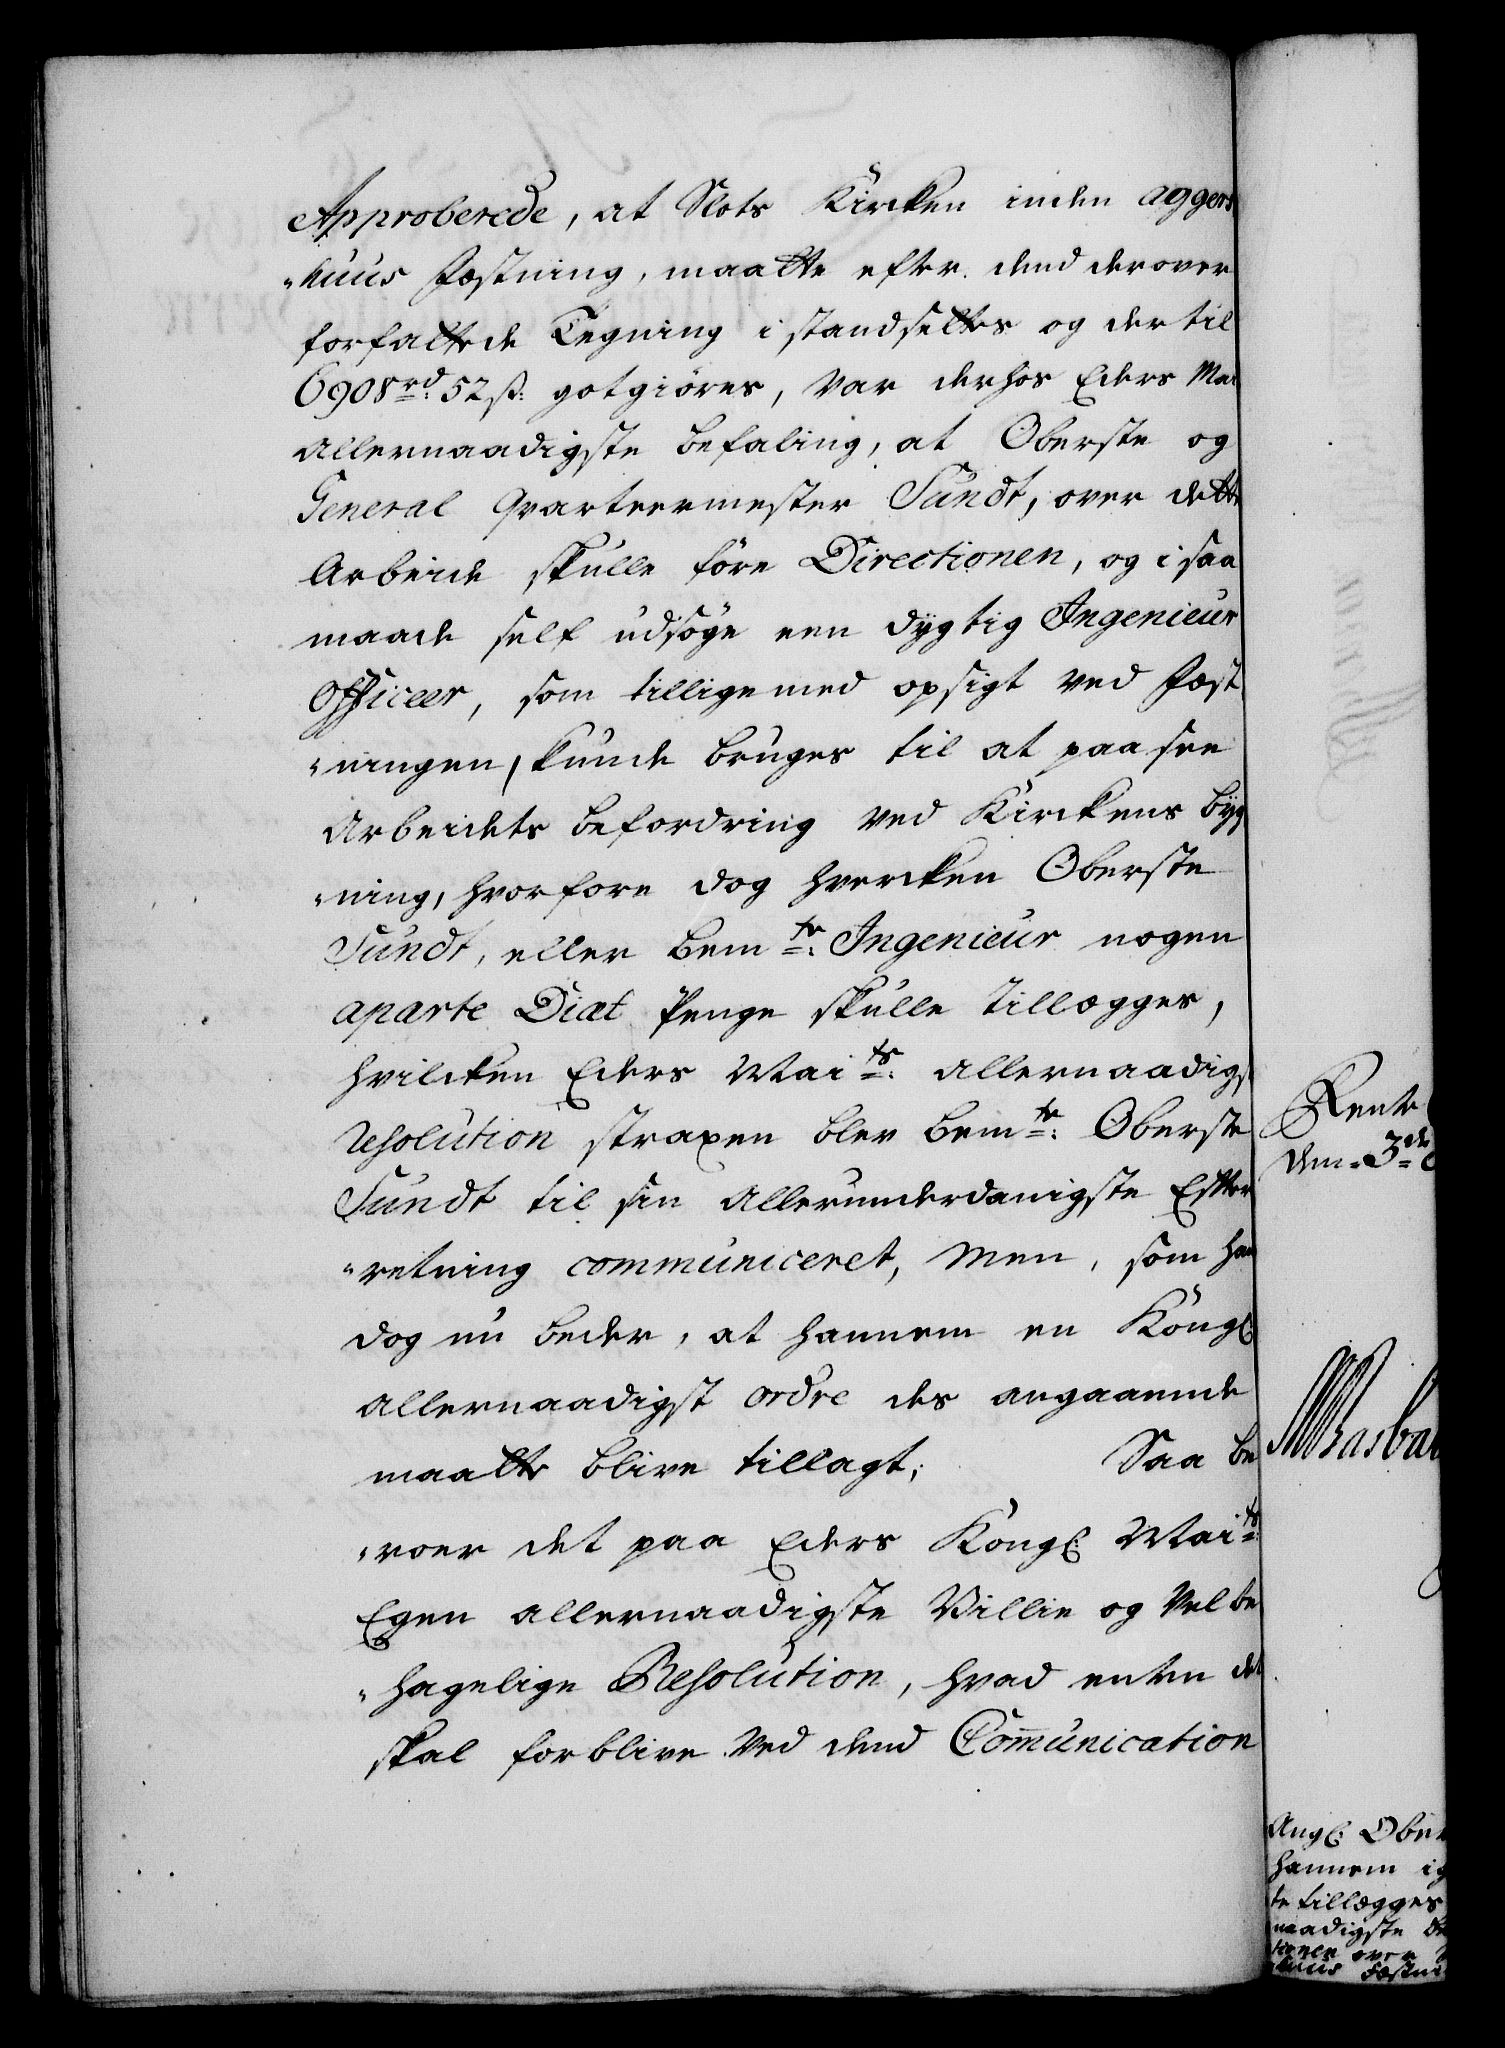 Approberede, at Slots Kircken inden Aggers
"huus Fæstning, maatte efter dend derover
forfattede Tegning i standsettes og dertil
6908 rd: 52 ß: gotgiöres, var derhos Eders Mai
Allernaadigste befaling, at Oberste og
General Qvarteermester Sundt, over dette
Arbeide skulle före Directionen, og i saa
maade self udsöge een dygtig Ingenieur
Officeer, som tilligemed opsigt ved Fæst
"ningen, kunde bruges til at paa see
Arbeidets befordring ved Kirckens byg
"ning, hvorfore dog hvercken Oberste
Sundt, eller bemte: Ingenieur nogen
aparte Diæt Penge skulle tillægges,
hvilcken Eders Maits: allernaadigst
Resolution straxen blev bemte: Oberste
Sundt til sin allerunderdanigste Efter
"retning communiceret, Men, som han
dog nu beder, at hannem en Kongl:
allernaadigst ordre des angaaende
maatte blive tillagt; Saa be
"roer det paa Eders Kongl: Maits:
Egen allernaadigste Villie og Velbe
"hagelige Resolution, hvad enten det
skal forblive ved dend Com̄unication
Rente
den 3de
Angl: Ober
hannem ig
te tillægges
naadigste
tionen over
huus Fæstni